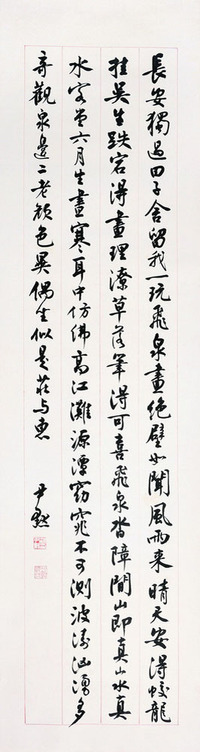 長安獨過田子舍留我一玩飛泉畫絕壁如聞風雨來晴天安得蛟龍
挂吳生跌宕得畫理潦草落筆得可喜飛泉沓障間山即真山水真
水六月生晝寒耳中仿佛高江灘源潭窈窕不可測波濤洶湧多
奇觀泉邊二老顏色異偶坐似是莊与惠
尹默